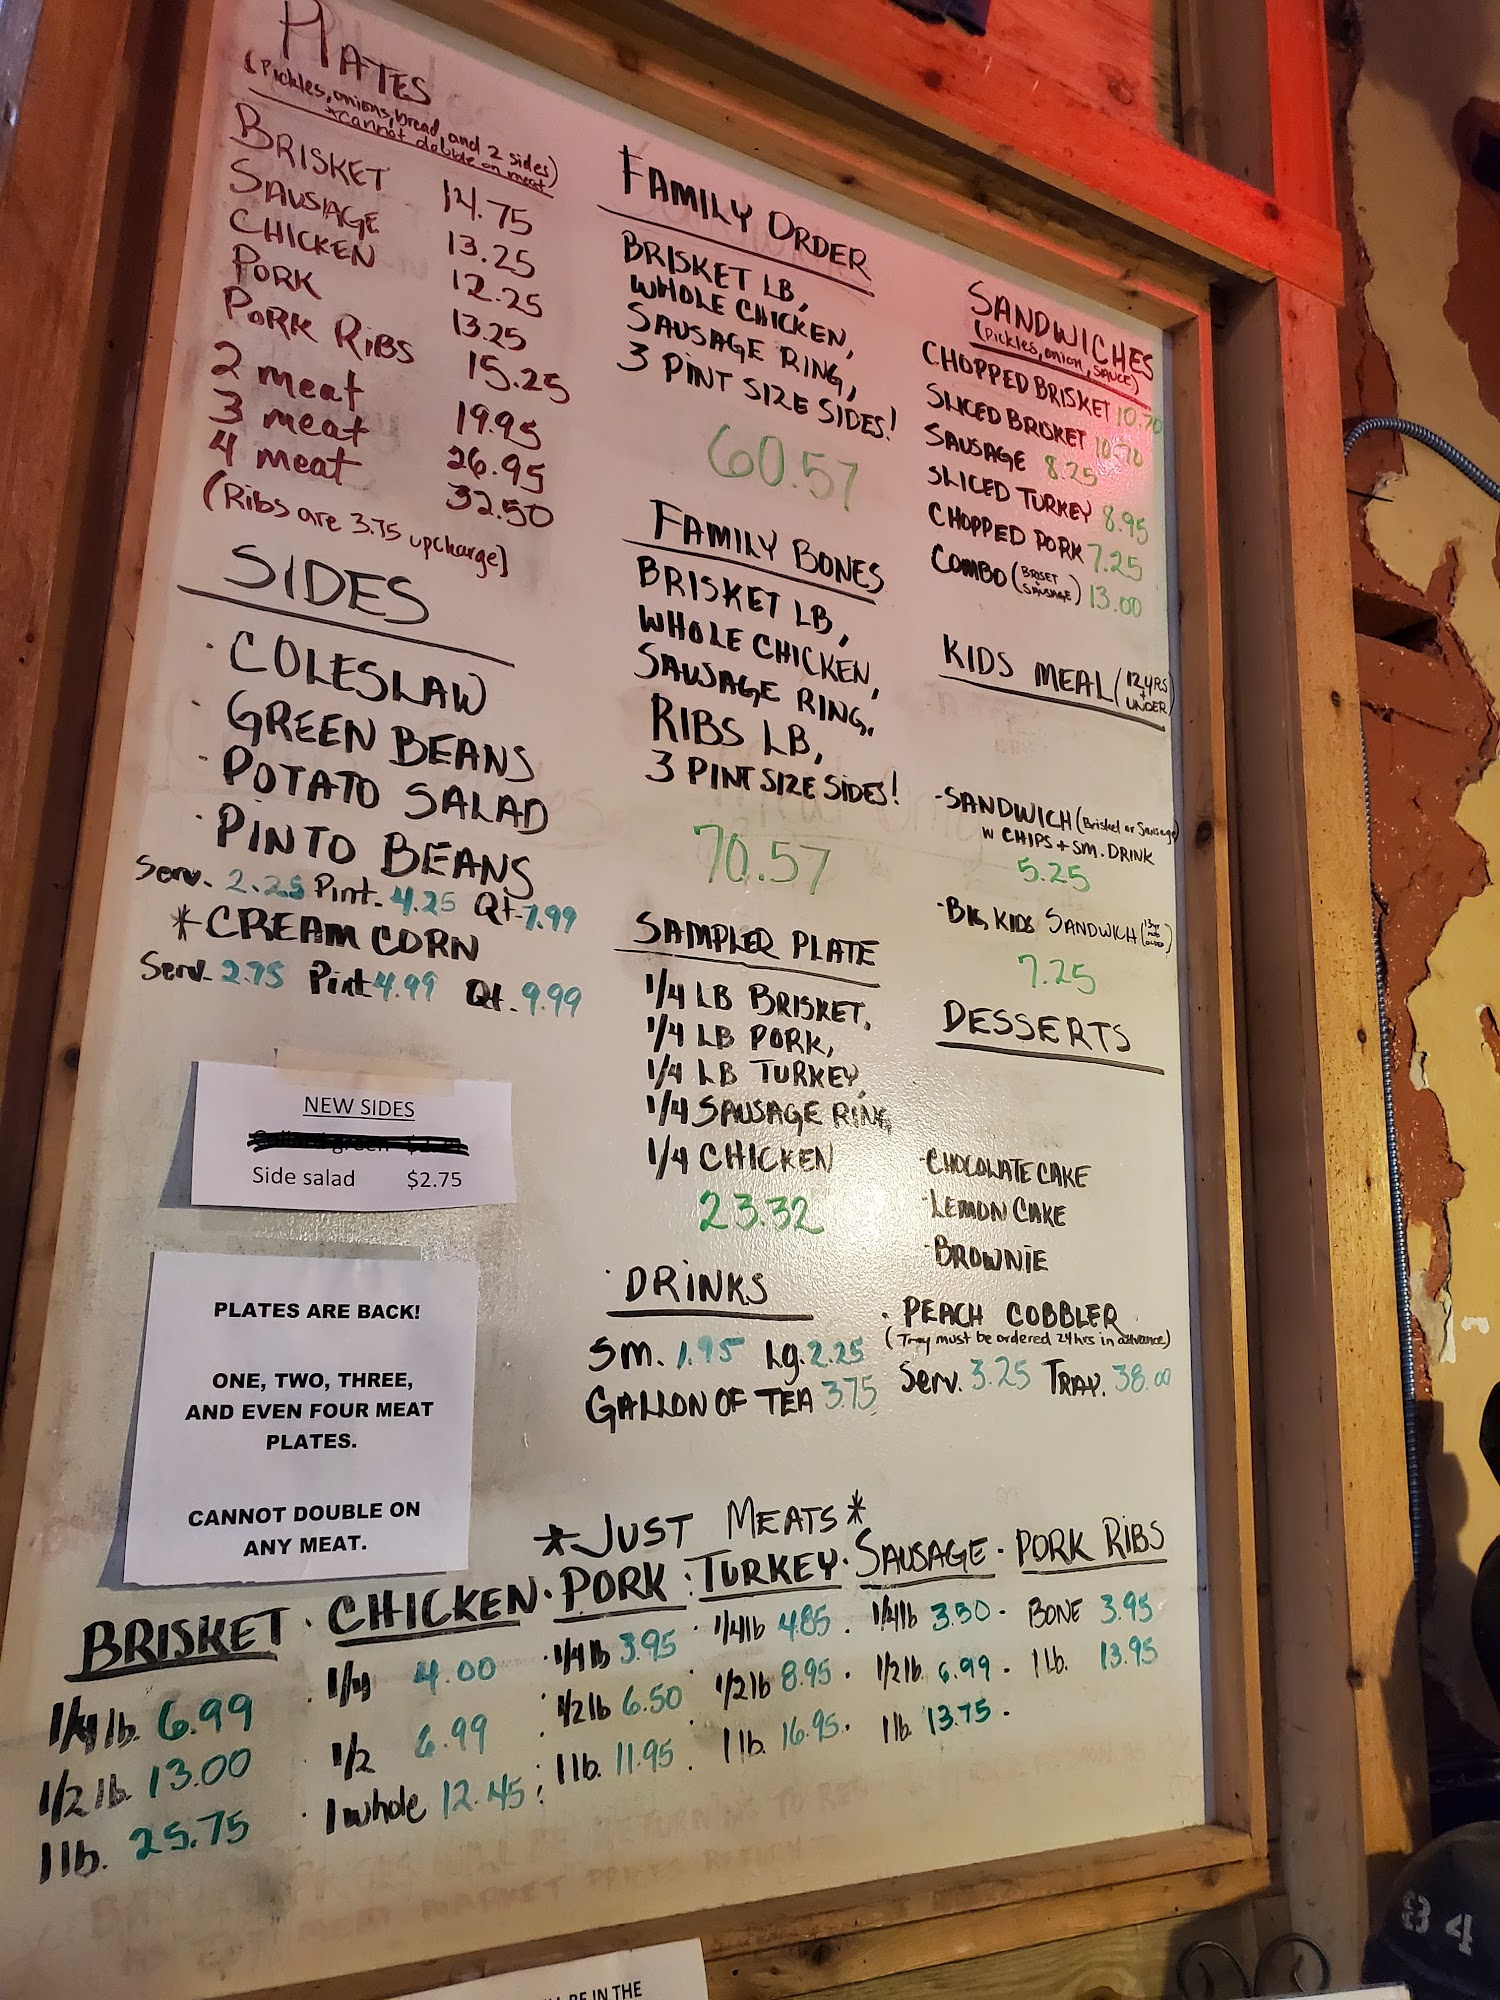 PLATES
(Pickles, onions, bread, and 2 sides)
*cannot double on meat
BRISKET 14.75
SAUSAGE 13.25
CHICKEN 12.25
PORK 13.25
PORK RIBS 15.25
2 meat 19.95
3 meat 26.95
4 meat 32.50
(Ribs are 3.75 upcharge)
SIDES
· COLESLAW
· GREEN BEANS
· POTATO SALAD
· PINTO BEANS
Serv. 2.25 Pint. 4.25 Qt. 7.99
*CREAM CORN
Serv. 2.75 Pint 4.99 Qt. 9.99
NEW SIDES
Side salad $2.75
PLATES ARE BACK!
ONE, TWO, THREE,
AND EVEN FOUR MEAT
PLATES.
CANNOT DOUBLE ON
ANY MEAT.
FAMILY ORDER
BRISKET LB,
WHOLE CHICKEN,
SAUSAGE RING,
3 PINT SIZE SIDES!
60.57
FAMILY BONES
BRISKET LB,
WHOLE CHICKEN,
SAUSAGE RING,
RIBS LB,
3 PINT SIZE SIDES!
70.57
SAMPLER PLATE
1/4 LB BRISKET,
1/4 LB PORK,
1/4 LB TURKEY,
1/4 SAUSAGE RING,
1/4 CHICKEN
23.32
· DRINKS
Sm. 1.95 Lg. 2.25
GALLON OF TEA 3.75
SANDWICHES
(Pickles, onion, sauce)
CHOPPED BRISKET 10.70
SLICED BRISKET 10.70
SAUSAGE 8.25
SLICED TURKEY 8.95
CHOPPED PORK 7.25
COMBO (BRISET + SAUSAGE) 13.00
KIDS MEAL (12 YRS + UNDER)
-SANDWICH (Brisket or Sausage)
w CHIPS + SM. DRINK
5.25
-BIG KIDS SANDWICH
7.25
DESSERTS
-CHOCOLATE CAKE
-LEMON CAKE
-BROWNIE
· PEACH COBBLER
(Tray must be ordered 24hrs in advance)
Serv. 3.25 TRAY. 38.00
*JUST MEATS*
BRISKET · CHICKEN · PORK : TURKEY · SAUSAGE · PORK RIBS
1/4 lb. 6.99 · 1/4 4.00 · 1/4 lb 3.95 · 1/4 lb 4.85 · 1/4 lb 3.50 · BONE 3.95
1/2 lb 13.00 1/2 6.99 : 1/2 lb 6.50 · 1/2 lb 8.95 · 1/2 lb 6.99 · 1 lb. 13.95
1 lb. 25.75 · 1 whole 12.45 : 1 lb. 11.95 · 1 lb. 16.95 · 1 lb 13.75 ·
BE IN THE
84